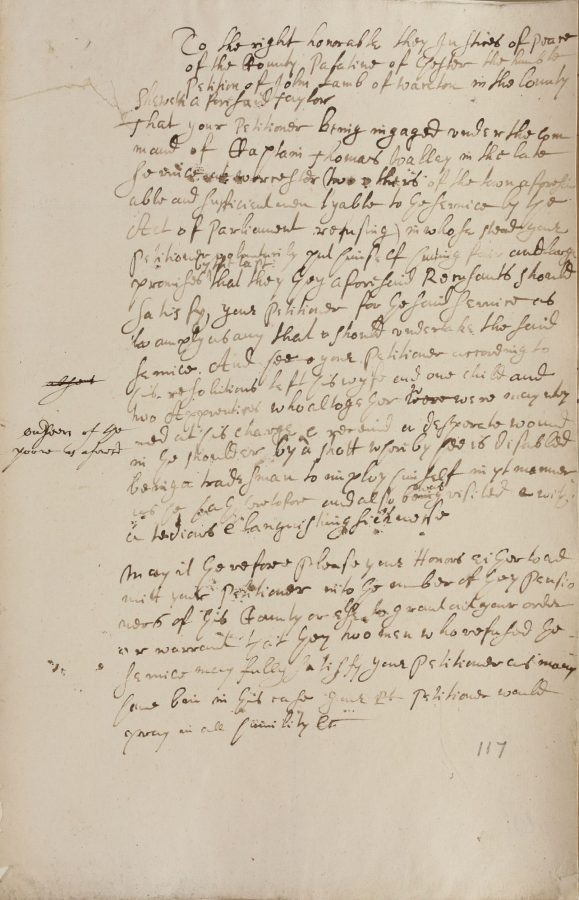 To the right honorable they Justices of peace
of the County Palatine of Chester the humble
Petition of John Lamb of in the County
aforesaid Taylor
Sheweth
That your Petitioner being ingaged under the Com
mand of Captain Thomas Valley in the late
service att worcester two of the
able and sufficient men lyable to the service by the
Act of Parliament refusing in whose stead your
Petitioner voluntarily put himself having fair and large
promises that they they aforesaid Recusants should
satisfy your Petitioner for the said service as
amply as any that should undertake the said
service. And your Petitioner according to
his resolutions left his wyfe and one child and
two Apprentices who altogether were were
ned at his charge & received a desperate wound
in the shoulder by a shott wherby hee is disabled
being a tradesman to imploy himself in yt manner
as he hath heretofore and also being visited with
a tedious & languishing sicknesse
overseers of the
poore as aforesd
May it therefore please your Honors either to ad
mitt your Petitioner into the number of they Pensio
ners of this County or else to grant out your order
or warrant that they two men who refused the
service may fully satisfy your Petitioner as many
have bin in this case your pt Petitioner would
pray in all humility &c
117